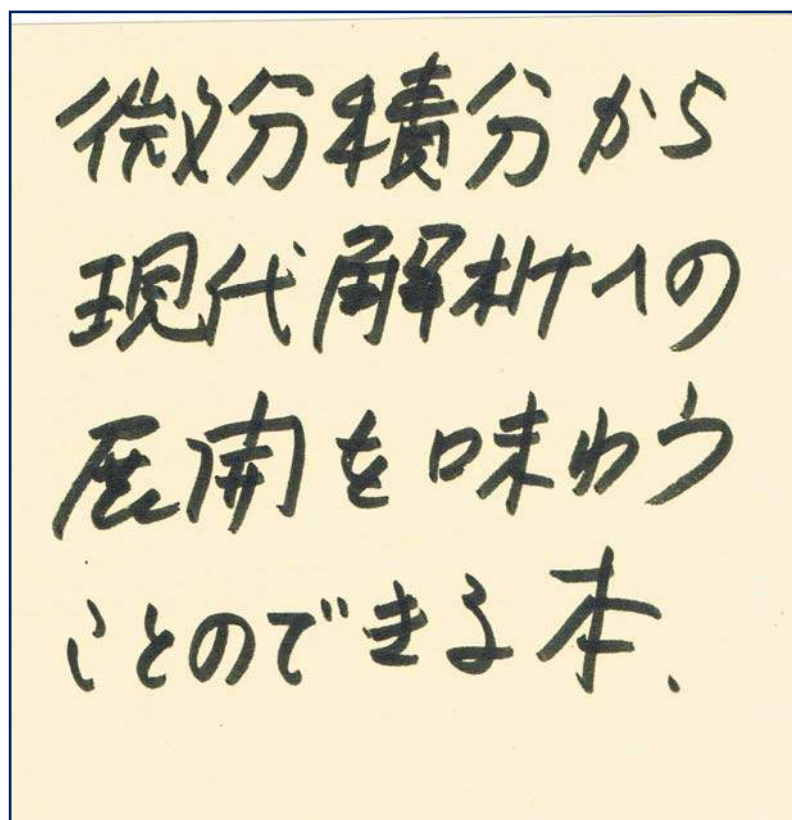 微分積分から
現代解析への
展開を味わう
ことのできる本、